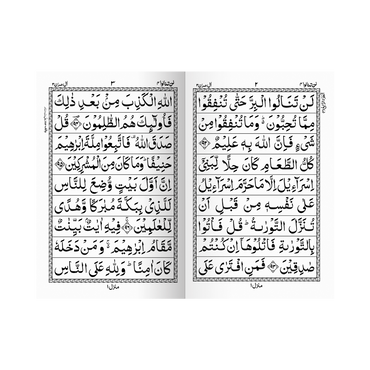 لن تنالوا ٤ ٢ آل عمران ٣
لَنْ تَنَالُوا الْبِرَّ حَتّٰى تُنْفِقُوْا
مِمَّا تُحِبُّوْنَ ؕ وَمَا تُنْفِقُوْا مِنْ
شَىْءٍ فَاِنَّ اللّٰهَ بِهٖ عَلِيْمٌ ﴿٩٢﴾
كُلُّ الطَّعَامِ كَانَ حِلًّا لِّبَنِىْٓ
اِسْرَآءِيْلَ اِلَّا مَا حَرَّمَ اِسْرَآءِيْلُ
عَلٰى نَفْسِهٖ مِنْ قَبْلِ اَنْ
تُنَزَّلَ التَّوْرٰىةُ ؕ قُلْ فَاْتُوْا
بِالتَّوْرٰىةِ فَاتْلُوْهَاۤ اِنْ كُنْتُمْ
صٰدِقِيْنَ ﴿٩٣﴾ فَمَنِ افْتَرٰى عَلَى
منزل ١
لن تنالوا ٤ ٣ آل عمران ٣
اللّٰهِ الْكَذِبَ مِنْۢ بَعْدِ ذٰلِكَ
فَاُولٰٓئِكَ هُمُ الظّٰلِمُوْنَ ﴿٩٤﴾ قُلْ
صَدَقَ اللّٰهُ ۟ فَاتَّبِعُوْا مِلَّةَ اِبْرٰهِيْمَ
حَنِيْفًا ؕ وَمَا كَانَ مِنَ الْمُشْرِكِيْنَ ﴿٩٥﴾
اِنَّ اَوَّلَ بَيْتٍ وُّضِعَ لِلنَّاسِ
لَلَّذِىْ بِبَكَّةَ مُبٰرَكًا وَّهُدًى
لِّلْعٰلَمِيْنَ ﴿٩٦﴾ فِيْهِ اٰيٰتٌۢ بَيِّنٰتٌ
مَّقَامُ اِبْرٰهِيْمَ ۚ وَمَنْ دَخَلَهٗ
كَانَ اٰمِنًا ؕ وَلِلّٰهِ عَلَى النَّاسِ
منزل ١